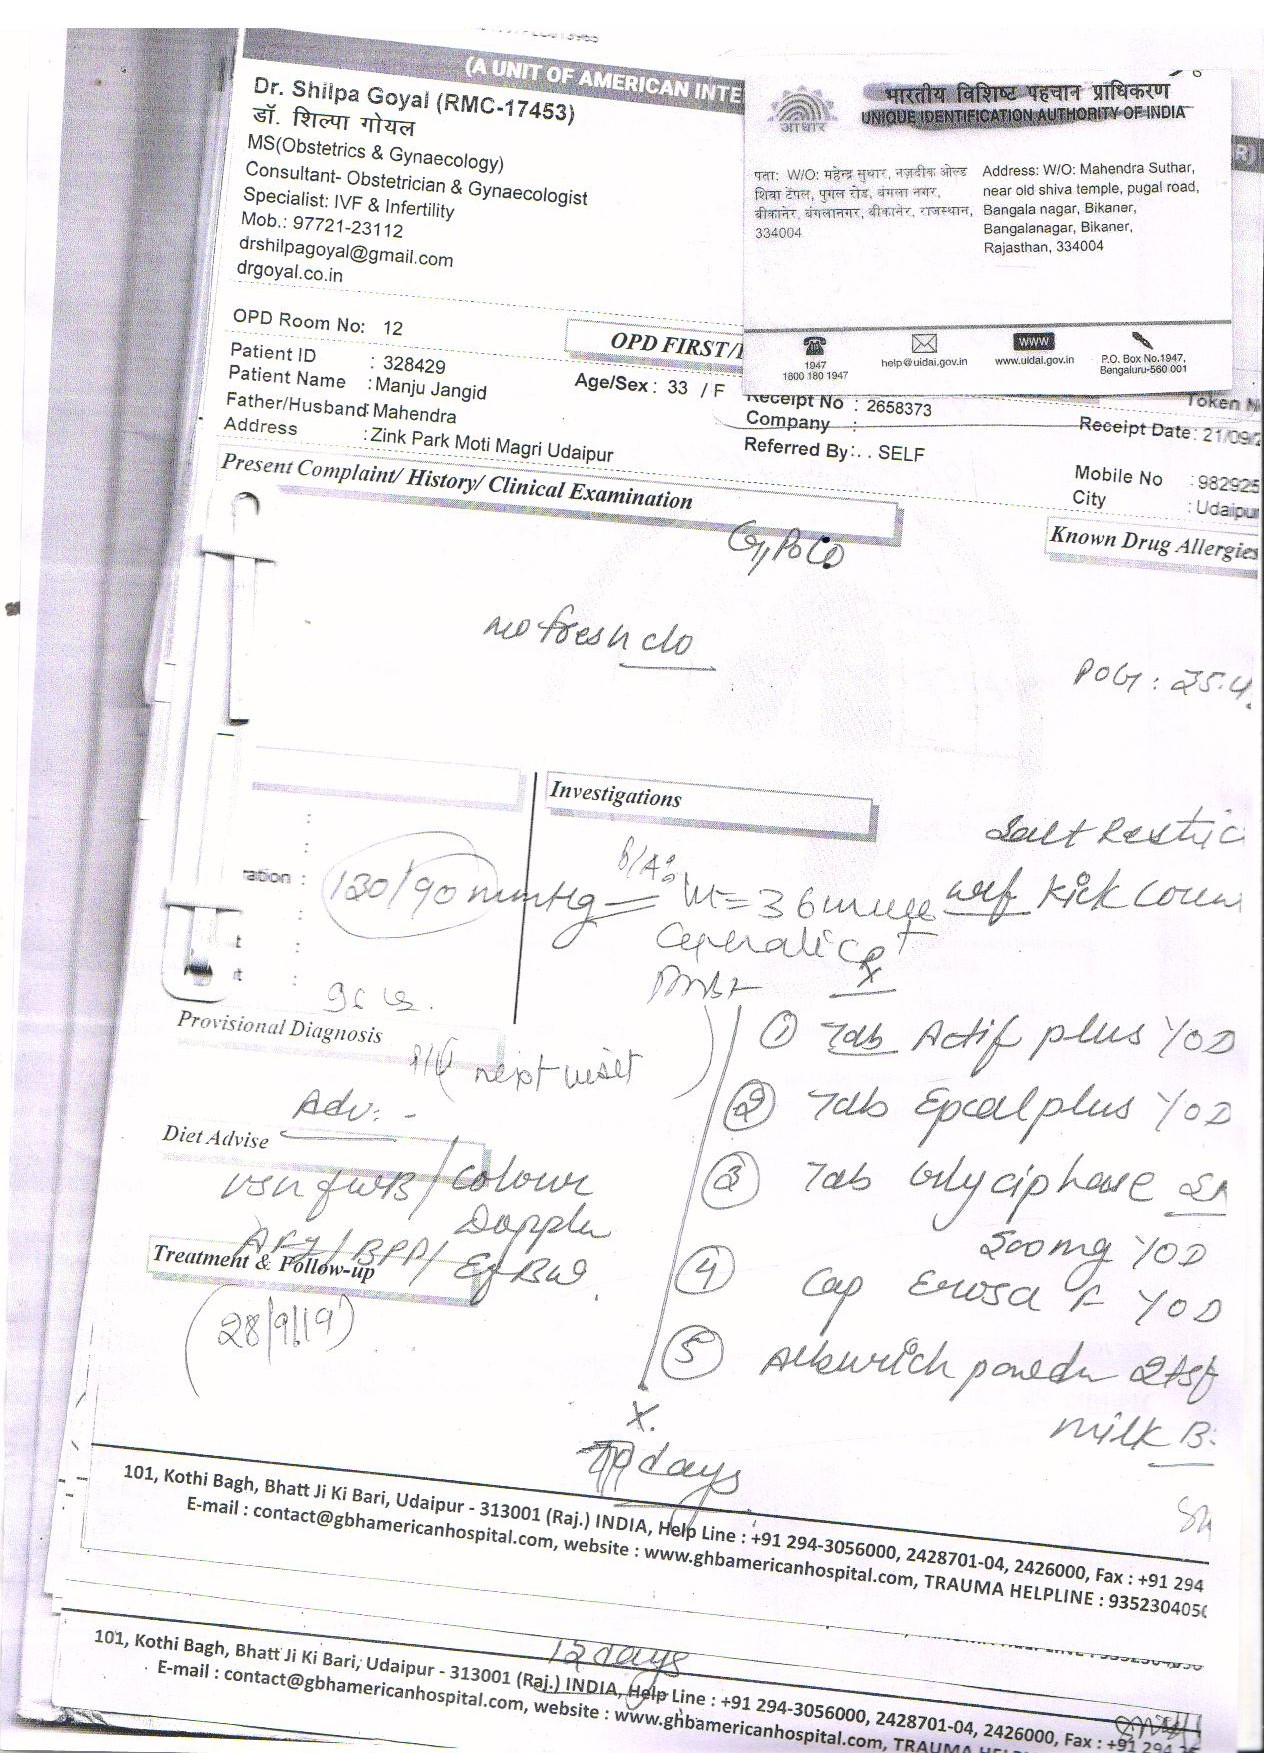 (A UNIT OF AMERICAN INTE
Dr. Shilpa Goyal (RMC-17453)
डॉ. शिल्पा गोयल
MS(Obstetrics & Gynaecology)
Consultant- Obstetrician & Gynaecologist
Specialist: IVF & Infertility
Mob.: 97721-23112
drshilpagoyal@gmail.com
drgoyal.co.in
आधार
भारतीय विशिष्ट पहचान प्राधिकरण
UNIQUE IDENTIFICATION AUTHORITY OF INDIA
पता: W/O: महेन्द्र सुथार, नज़दीक ओल्ड
शिवा टेंपल, पुगल रोड, बंगला नगर,
बीकानेर, बंगलानगर, बीकानेर, राजस्थान,
334004
Address: W/O: Mahendra Suthar,
near old shiva temple, pugal road,
Bangala nagar, Bikaner,
Bangalanagar, Bikaner,
Rajasthan, 334004
1947
1800 180 1947
help@uidai.gov.in
www
www.uidai.gov.in
P.O. Box No.1947,
Bengaluru-560 001
OPD Room No: 12
OPD FIRST/
Patient ID : 328429
Patient Name : Manju Jangid
Age/Sex : 33 / F
Father/Husband: Mahendra
Address : Zink Park Moti Magri Udaipur
Receipt No : 2658373
Company :
Referred By: . . SELF
Token N
Receipt Date: 21/09/2
Mobile No : 982925
City : Udaipur
Present Complaint/ History/ Clinical Examination
Known Drug Allergies
G1P0
no fresh c/o
POG : 35.4
Investigations
Salt Restric
ration : 130/90 mmHg
P/A: ut = 36 weeks
Kick Coun
Cephalic
Rx
Provisional Diagnosis
P/V next visit
Adv: -
Diet Advise
USG FWB / Colour
Doppler
AFI / BPP /
Treatment & Follow-up
(28/9/19)
① Tab Actif plus
② Tab Epcal plus
③ Tab
500mg
④ Cap
⑤ powder 2tsf
milk B
X
days
101, Kothi Bagh, Bhatt Ji Ki Bari, Udaipur - 313001 (Raj.) INDIA, Help Line : +91 294-3056000, 2428701-04, 2426000, Fax : +91 294
E-mail : contact@gbhamericanhospital.com, website : www.ghbamericanhospital.com, TRAUMA HELPLINE : 935230405
12 days
101, Kothi Bagh, Bhatt Ji Ki Bari, Udaipur - 313001 (Raj.) INDIA, Help Line : +91 294-3056000, 2428701-04, 2426000, Fax : +91 294
E-mail : contact@gbhamericanhospital.com, website : www.ghbamericanhospital.com, TRAUMA